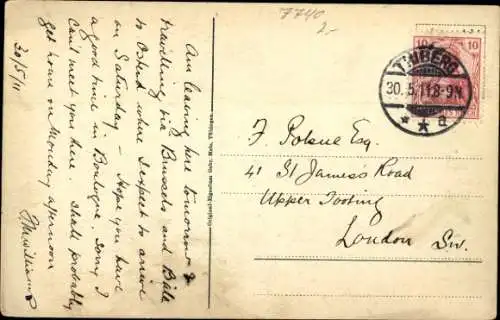 30/5/11
Am leaving here tomorrow &
travelling via Brussels and Bâle
to Ostend where I expect to arrive
on Saturday — Hope you have
a good time in Boulogne. Sorry I
can't meet you here shall probably
get home on Monday afternoon
7740
2-
10 10
30.5.11 8-9N.
* * a
F. Polsue Esq.
41 St James's Road
Upper Tooting
London Sw.